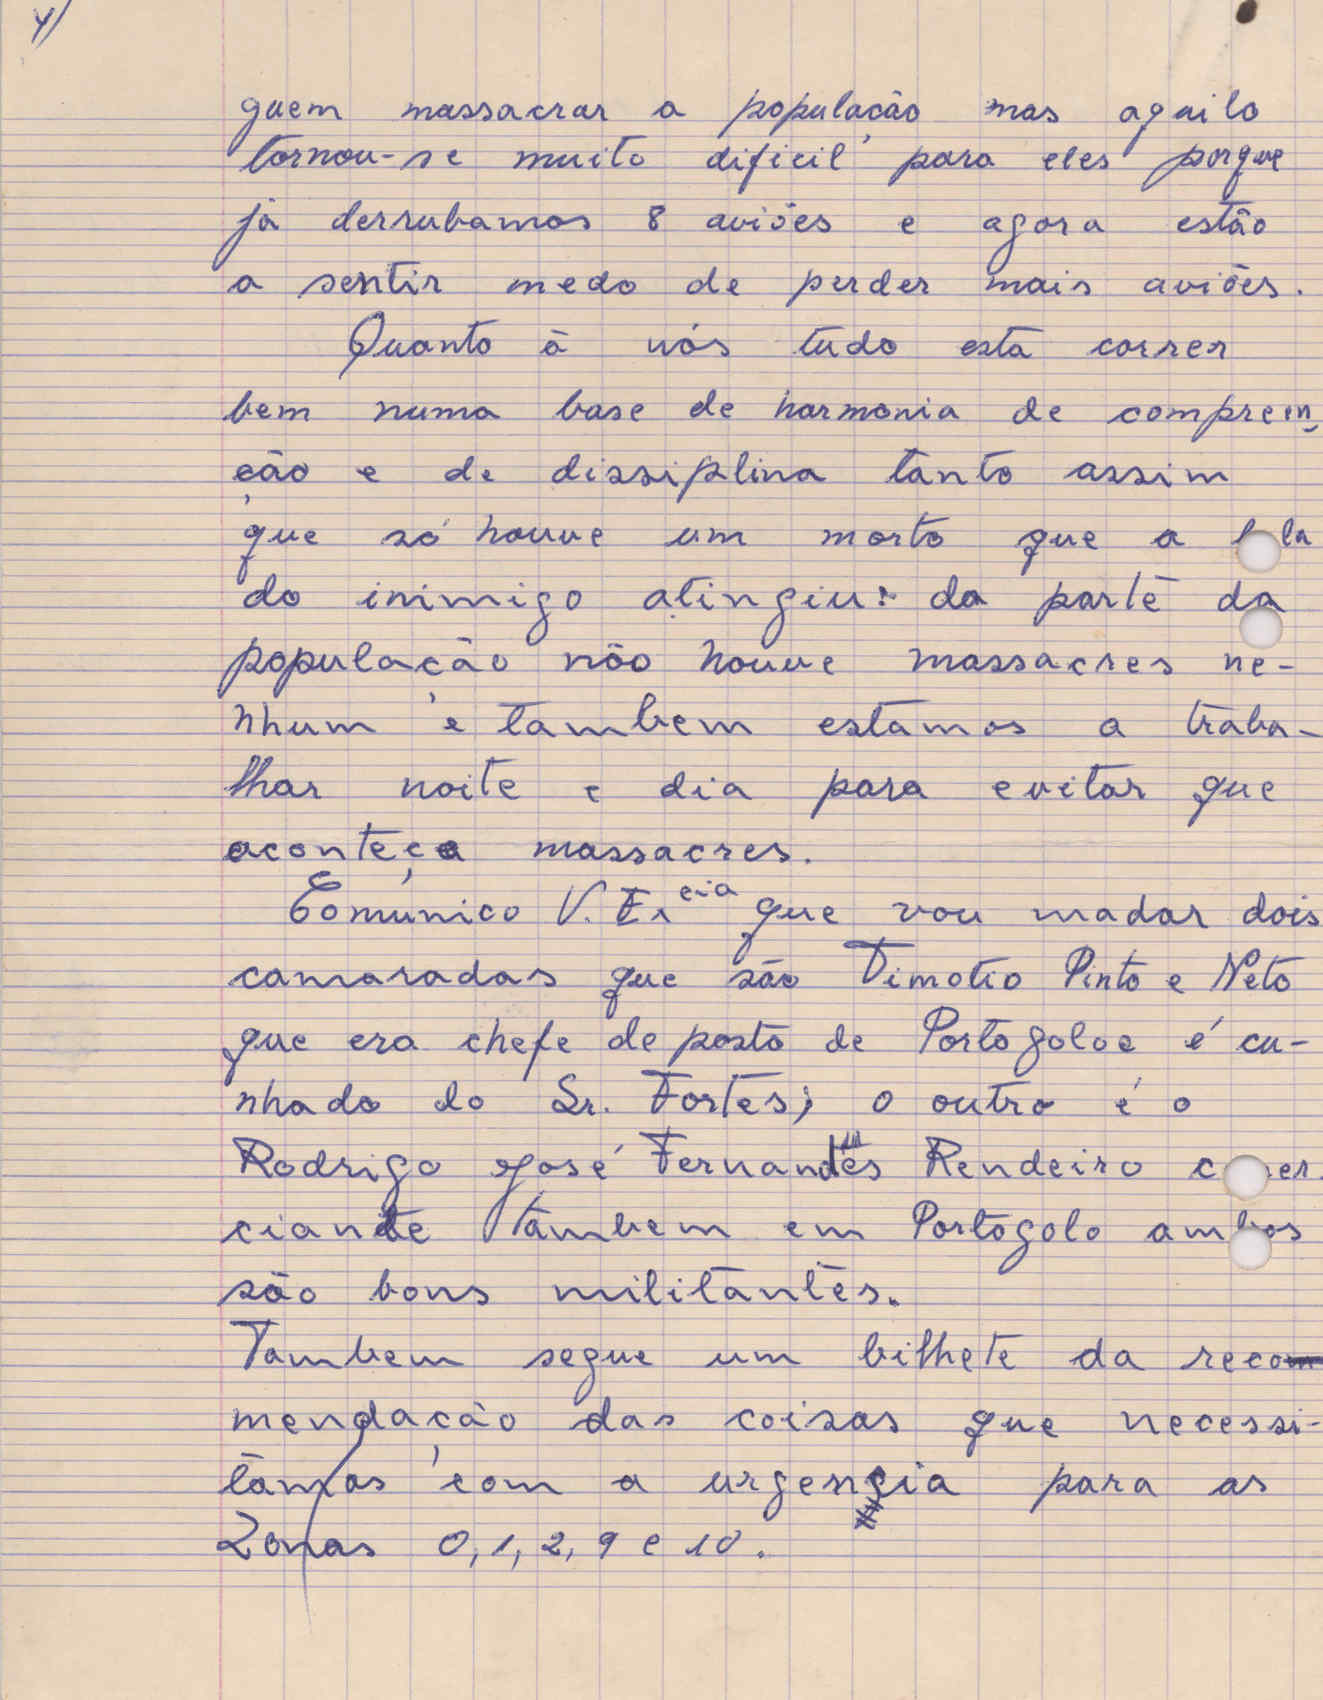 4/
guem massacrar a população mas aquilo
tornou-se muito dificil para eles porque
já derrubamos 8 aviões e agora estão
a sentir medo de perder mais aviões.
Quanto à nós tudo está correr
bem numa base de harmonia de compreen-
ção e de dissiplina tanto assim
que só houve um morto que a bala
do inimigo atingiu: da parte da
população não houve massacres ne-
nhum e tambem estamos a traba-
lhar noite e dia para evitar que
aconteça massacres.
Comunico V. Excia que vou madar dois
camaradas que são Timotio Pinto e Neto
que era chefe de posto de Portogoloe é cu-
nhado do Sr. Fortes; o outro é o
Rodrigo José Fernandes Rendeiro comer-
ciante tambem em Portogolo ambos
são bons militantes.
Tambem segue um bilhete da recom
mendação das coisas que necessi-
tamos com a urgencia para as
Zonas 0, 1, 2, 9 e 10.